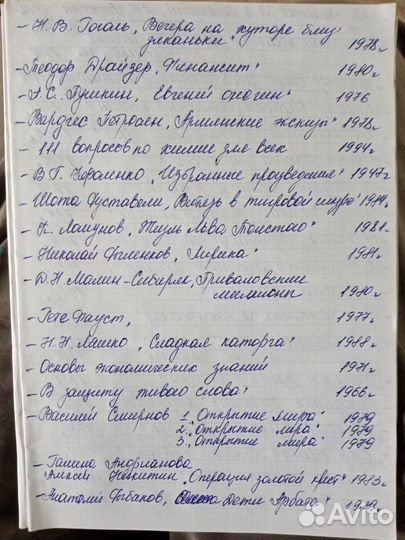 - Н. В. Гоголь, "Вечера на хуторе близ
диканьки" 1978 г
- Теодор Драйзер, "Финансист" 1980 г
- А. С. Пушкин, Евгений онегин" 1976
- Вардгес Петросян, "Армянские эскизы" 1978 г
- 111 вопросов по химии для всех 1994 г
- В Г. Короленко, "Избранные произведения" 1947 г
- Шота Руставели, Витязь в тигровой шкуре"
- К. Ломунов, "Жизнь Льва Толстого" 1981 г
- Николай Рыленков, "Лирика" 1981 г
- Д. Н. Мамин-Сибиряк, "Приваловские
миллионы 1980 г
- Гёте Фауст, 1977 г
- Н. Н. Ляшко, "Сладкая каторга" 1988 г
- Основы экономических знаний 1971 г
- В защиту живого слова" 1966 г
- Василий Смирнов 1. "Открытие мира" 1979
2. "Открытие мира" 1979
3. "Открытие мира" 1979
- Галина Андрианова
Алексей Никитин, "Операция золотой крест" 1983 г
- Анатолий Рыбаков, "Дети Арбата"
Avito